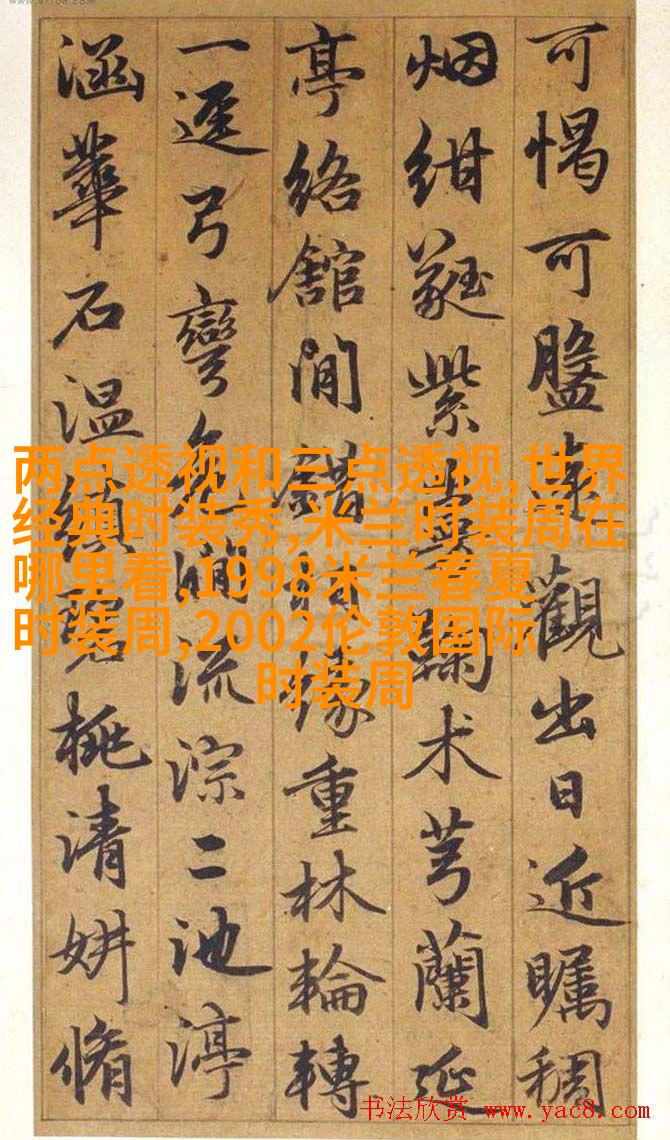 可惕可盬
觀出日近矚稠
烟紺蕤紫
術芎蘭延
亭絡館閒錯
緣重林輪轉
一逕弓彎
流淙二池渟
涵華石温
桃清妍脩
两点透视和三点透视,世界
经典时装秀,米兰时装周在
哪里看,1998米兰春夏
时装周,2002伦敦国际
时装周
书法欣赏 www.yac8.com